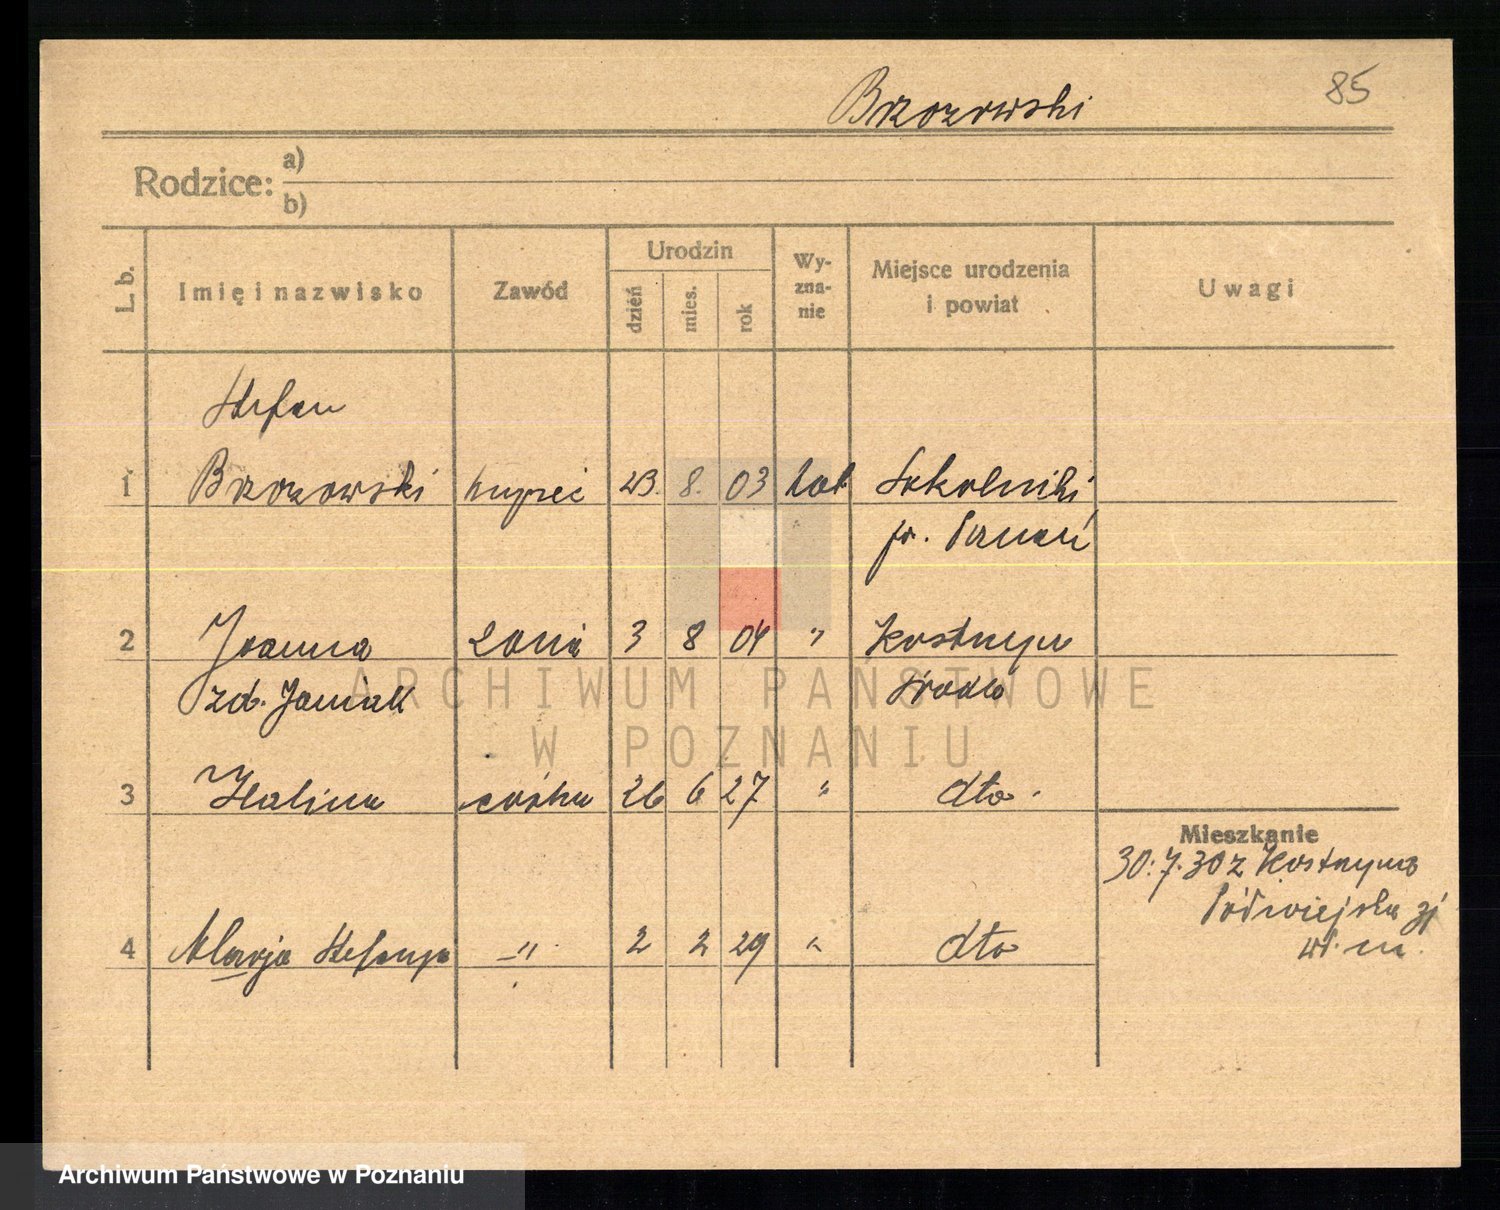 Brzozowski
85
Rodzice:
a)
b)
L. b.
Imię i nazwisko
Zawód
Urodzin
dzień
mies.
rok
Wy-
zna-
nie
Miejsce urodzenia
i powiat
Uwagi
Stefan
1 Brzozowski kupiec 23. 8. 03 kat. Sokolniki
p. Poznań
2 Joanna żona 3 8 04 " Kostrzyn
zd. Janiak Środa
3 Halina córka 26 6 27 " dto.
Mieszkanie
30.7.30 z Kostrzyna
Półwiejska
4 Marja Stefanja -"- 2 2 29 " dto
ARCHIWUM PAŃSTWOWE
W POZNANIU
Archiwum Państwowe w Poznaniu